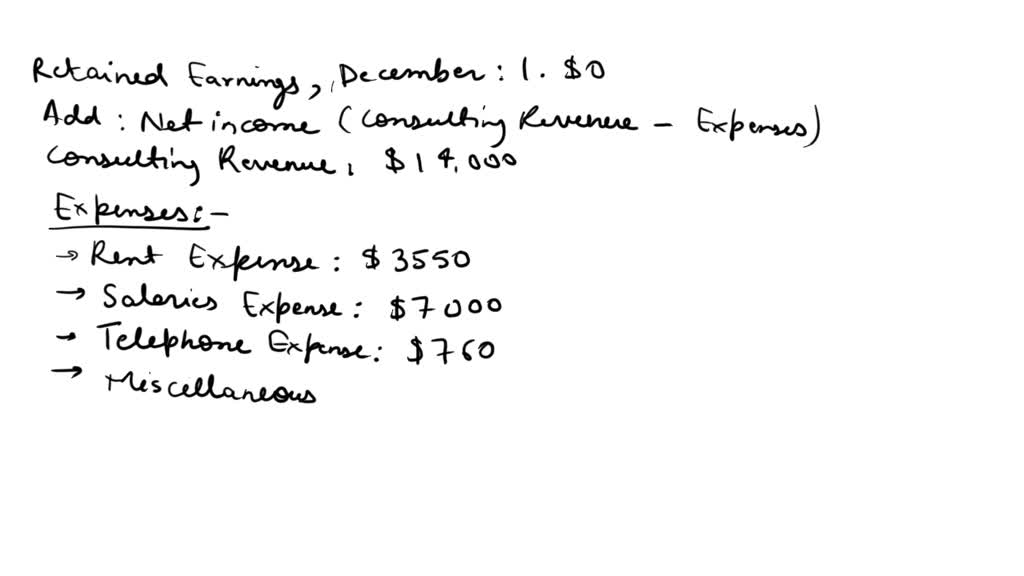 Retained Earnings, December : 1. $0
Add : Net income (Consulting Revenue - Expenses)
Consulting Revenue, $14,000
Expenses:-
→ Rent Expense : $3550
→ Salaries Expense : $7000
→ Telephone Expense : $760
→ Miscellaneous